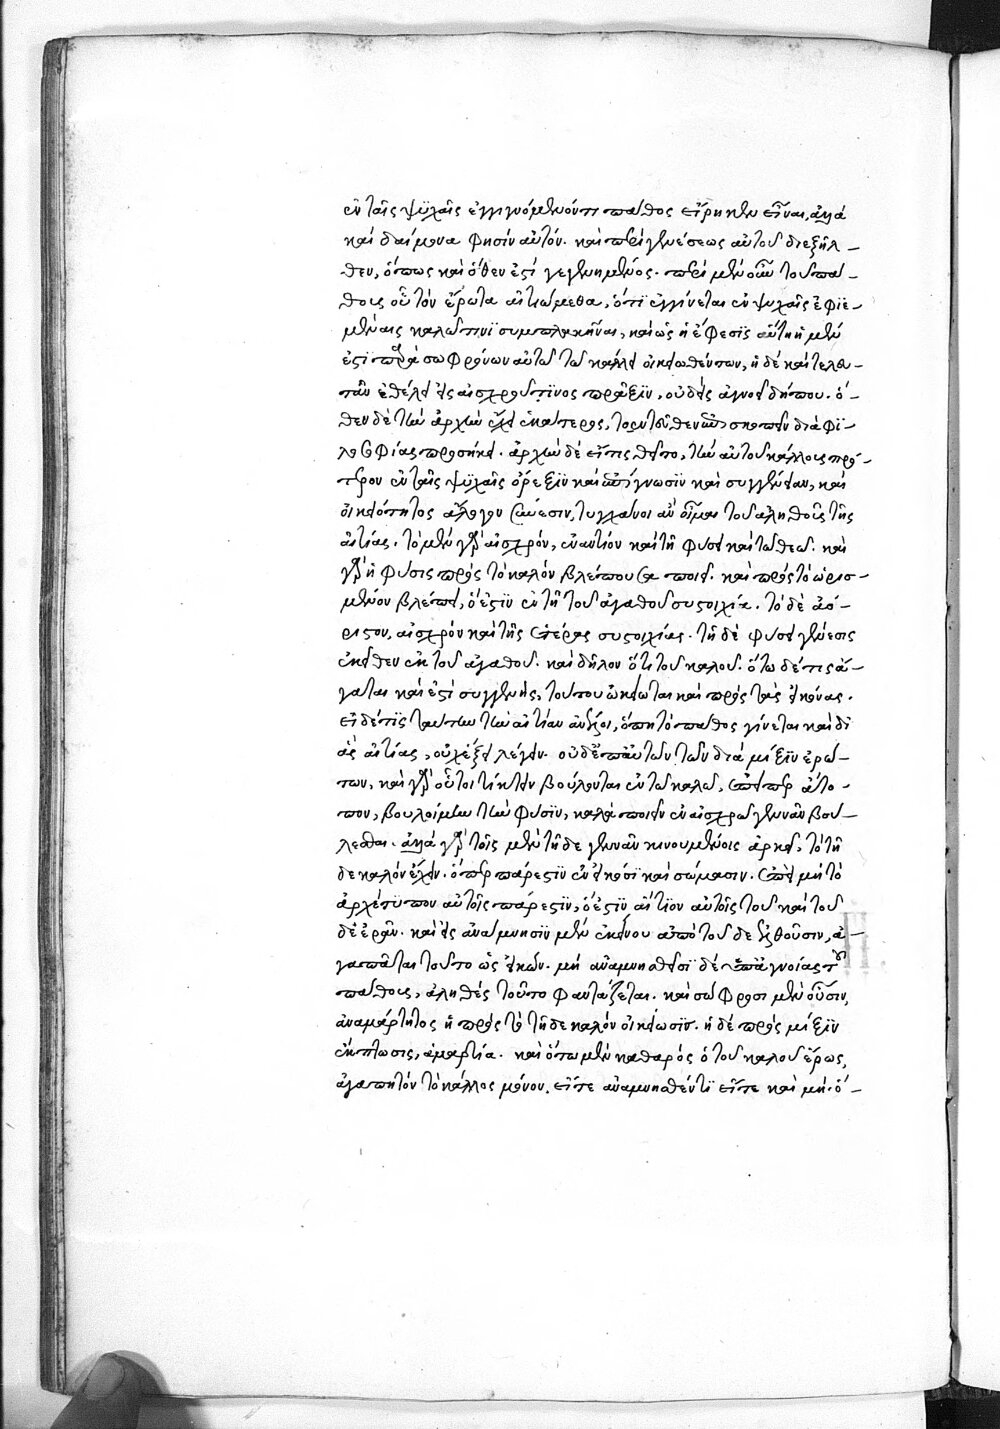 ἐν ταῖς ψυχαῖς ἐγγιγνόμενόν τι πάθος εἴρηκεν εἶναι, ἀλλὰ
καὶ δαίμονα φησὶν αὐτόν. καὶ περὶ γενέσεως αὐτοῦ διεξῆλ-
θεν, ὅπως καὶ ὅθεν ἐστὶ γεγενημένος. περὶ μὲν οὖν τοῦ πά-
θους οὗ τὸν ἔρωτα αἰτιώμεθα, ὅτι ἐγγίνεται ἐν ψυχαῖς ἐφιε-
μέναις καλῷ τινὶ συμπλακῆναι, καὶ ὡς ἡ ἔφεσις αὕτη ἡ μέν
ἐστι παρὰ σωφρόνων αὐτῷ τῷ κάλλει οἰκειωθέντων, ἡ δὲ καὶ τελευ-
τᾶν ἐθέλει εἰς αἰσχροῦ τινος πρᾶξιν, οὐδεὶς ἀγνοεῖ δήπου. ὅ-
θεν δὲ τὴν ἀρχὴν ἔχει ἑκάτερος, τὸ ἐντεῦθεν ἐπισκοπεῖν διὰ φι-
λοσοφίας προσήκει. ἀρχὴν δὲ εἴ τις θεῖτο, τὴν αὐτοῦ κάλλους πρό-
τερον ἐν ταῖς ψυχαῖς ὄρεξιν καὶ ἐπίγνωσιν καὶ συγγένειαν, καὶ
οἰκειότητος ἄλογον σύνεσιν, τυγχάνοι ἂν οἶμαι τοῦ ἀληθοῦς τῆς
αἰτίας. τὸ μὲν γὰρ αἰσχρὸν, ἐναντίον καὶ τῇ φύσει καὶ τῷ θεῷ. καὶ
γὰρ ἡ φύσις πρὸς τὸ καλὸν βλέπουσα ποιεῖ. καὶ πρὸς τὸ ὡρισ-
μένον βλέπει, ὅ ἐστιν ἐν τῇ τοῦ ἀγαθοῦ συστοιχίᾳ. τὸ δὲ ἀό-
ριστον, αἰσχρὸν καὶ τῆς ἑτέρας συστοιχίας. τῇ δὲ φύσει γένεσις
ἐκεῖθεν ἐκ τοῦ ἀγαθοῦ. καὶ δῆλον ὅτι τοῦ καλοῦ. ὅτῳ δέ τις ἄ-
γαται καὶ ἐστὶ συγγενὴς, τούτου ᾠκείωται καὶ πρὸς τὰς εἰκόνας.
εἰ δέ τις ταύτην τὴν αἰτίαν ἀνέλοι, ὅπη τὸ πάθος γίνεται καὶ δι'
ἃς αἰτίας, οὐχ ἕξει λέγειν. οὐδ' ἐπ' αὐτῶν τῶν διὰ μῖξιν ἐρώ-
των, καὶ γὰρ οὗτοι τίκτειν βούλονται ἐν τῷ καλῷ, ἐπείπερ ἄτο-
πον, βουλομένην τὴν φύσιν, καλὰ ποιεῖν ἐν αἰσχρῷ γεννᾶν βού-
λεσθαι. ἀλλὰ γὰρ τοῖς μὲν τῇδε γεννᾶν κινουμένοις ἀρκεῖ, τὸ τῇ
δε καλὸν ἔχειν. ὅπερ πάρεστιν ἐν εἰκόσι καὶ σώμασιν. ἐπεὶ μὴ τὸ
ἀρχέτυπον αὐτοῖς πάρεστιν, ὅ ἐστιν αἴτιον αὐτοῖς τοῦ καὶ τοῦ
δὲ ἐρᾶν. καὶ εἰς ἀνάμνησιν μὲν ἐκείνου ἀπὸ τοῦδε ἐλθοῦσιν, ἀ-
γαπᾶται τοῦτο ὡς εἰκών. μὴ ἀναμνησθεῖσι δὲ ὑπ' ἀγνοίας τοῦ
πάθους, ἀληθὲς τοῦτο φαντάζεται. καὶ σώφροσι μὲν οὖσιν,
ἀναμάρτητος ἡ πρὸς τὸ τῇδε καλὸν οἰκείωσις. ἡ δὲ πρὸς μῖξιν
ἔκπτωσις, ἁμαρτία. καὶ ὅτῳ μὲν καθαρὸς ὁ τοῦ καλοῦ ἔρως,
ἀγαπητὸν τὸ κάλλος μόνον. εἴτε ἀναμνησθέντι εἴτε καὶ μή. ὅ-